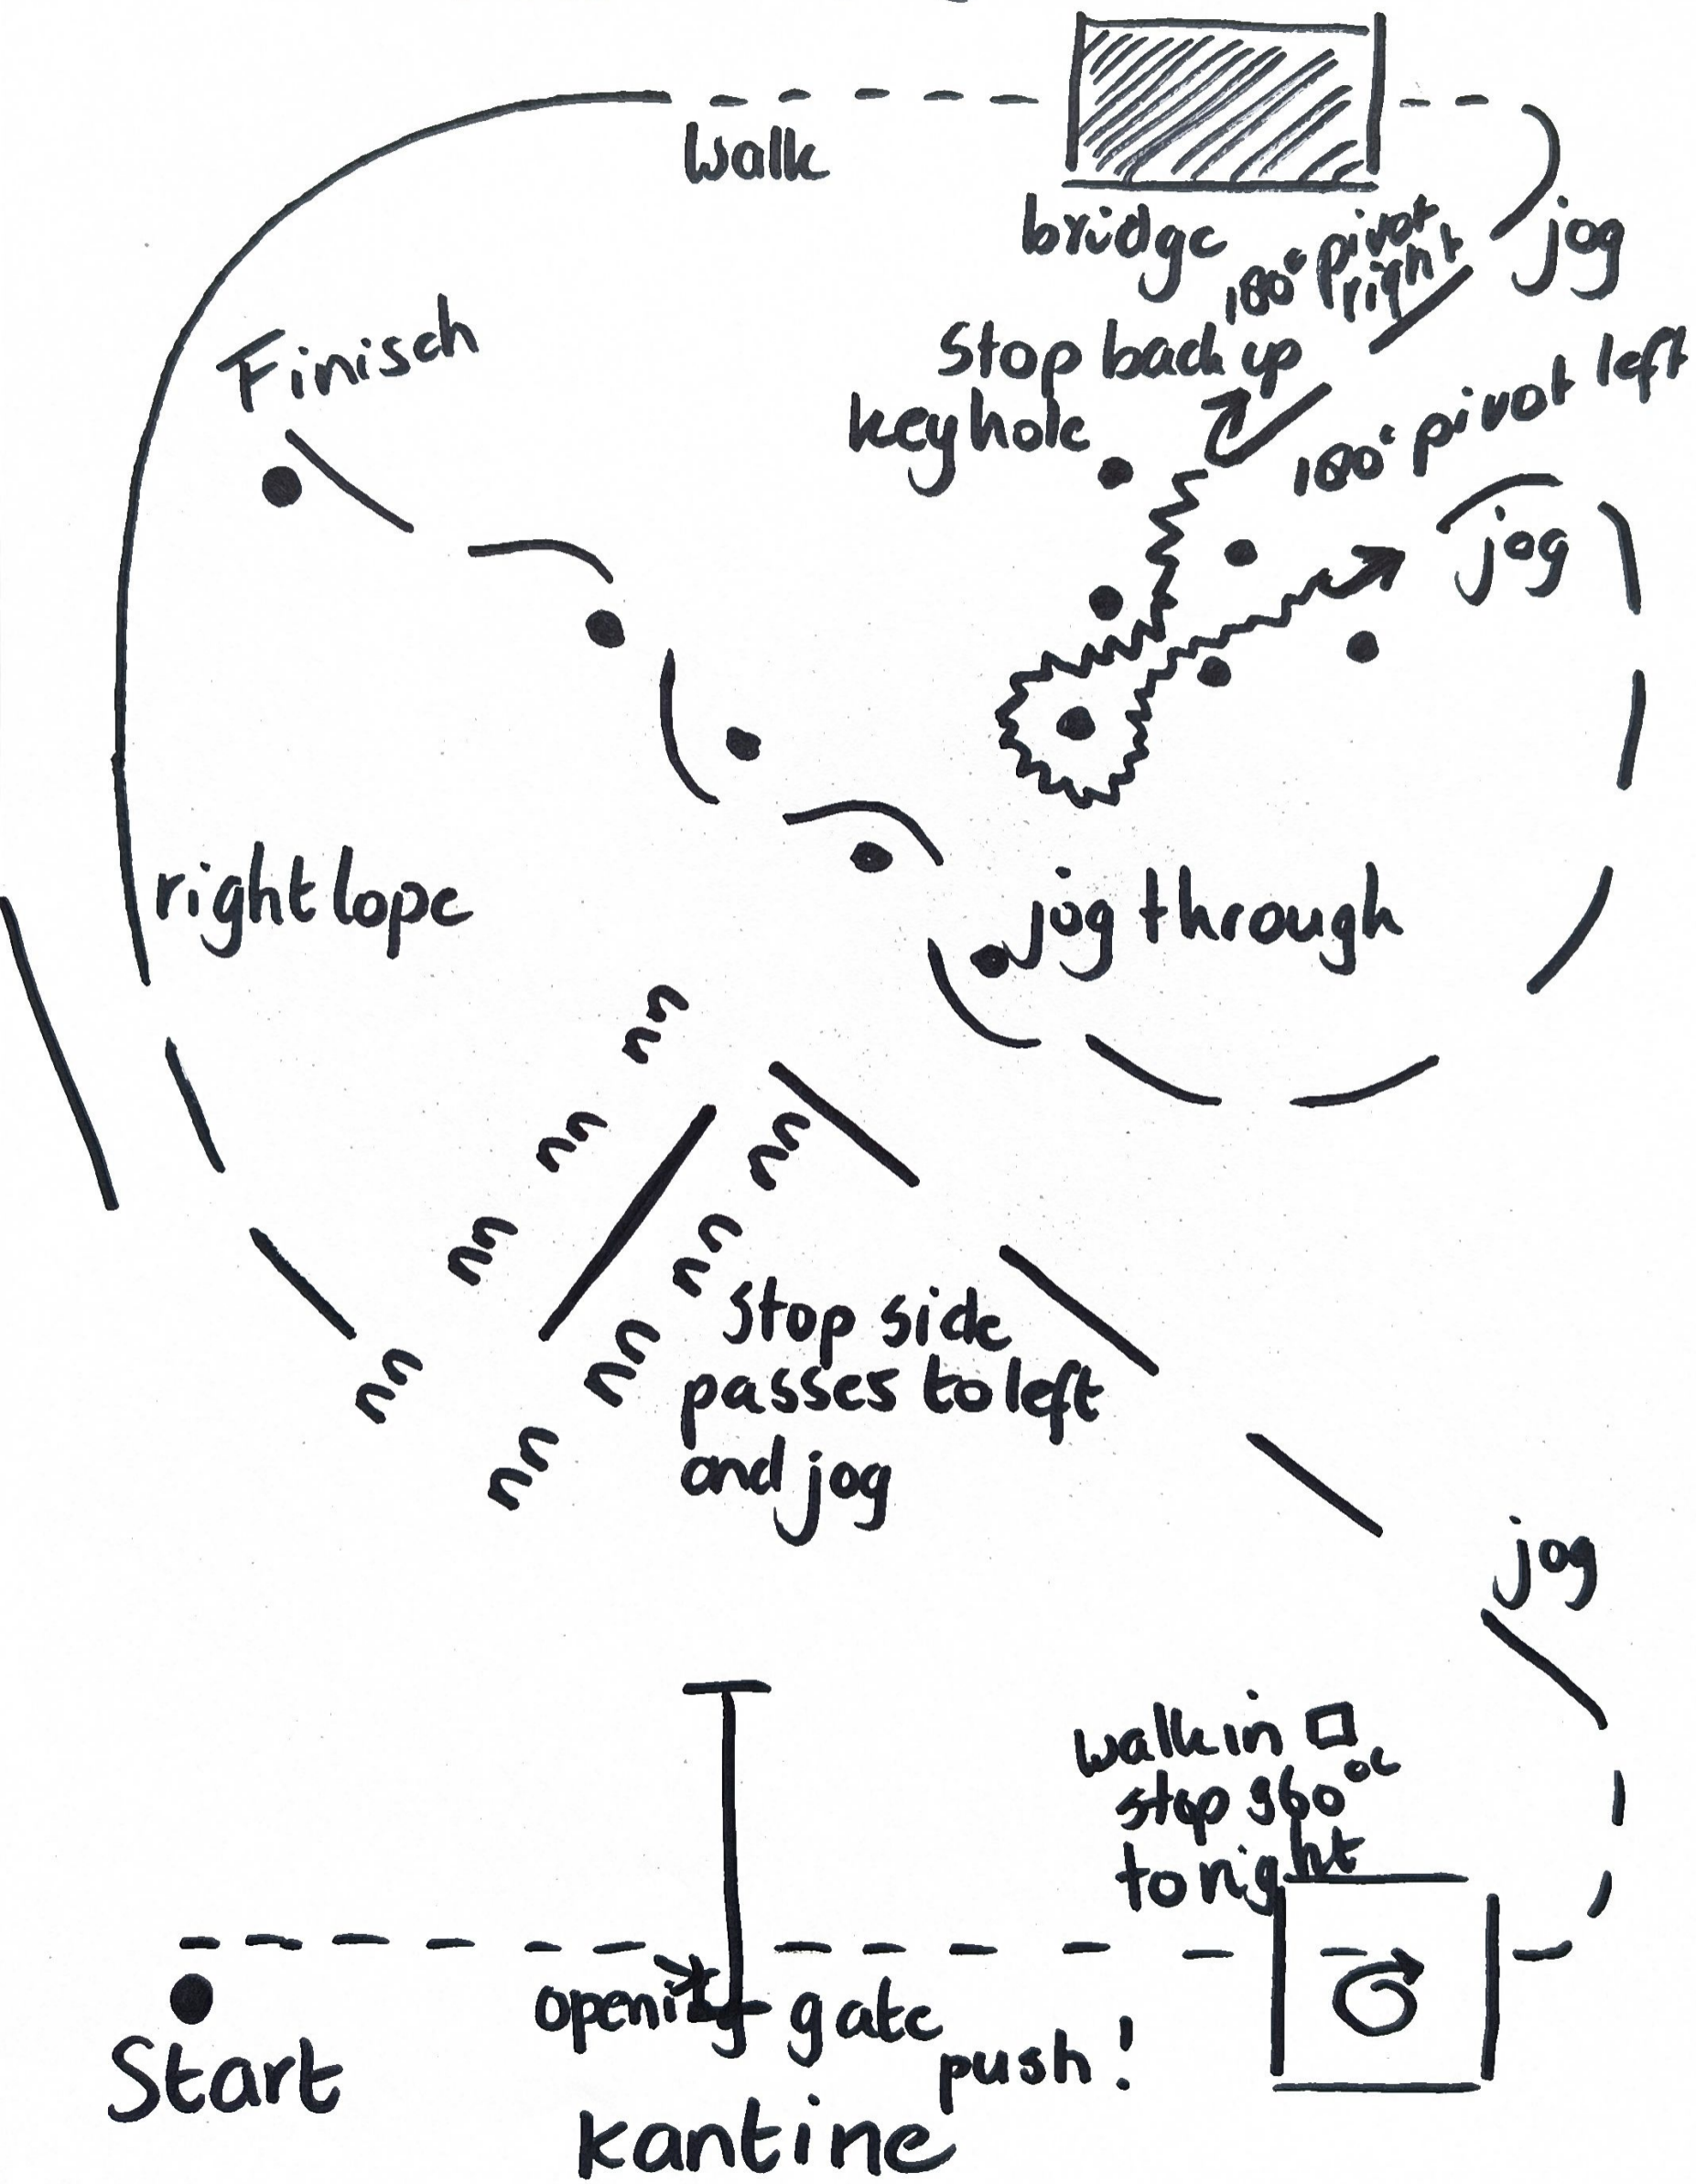 walk
bridge
jog
180° pivot
right
Stop back up
keyhole
180° pivot left
jog
Finisch
right lope
jog through
stop side
passes to left
and jog
jog
walk in □
stop 360°
to right
opening gate
push!
Start
kantine